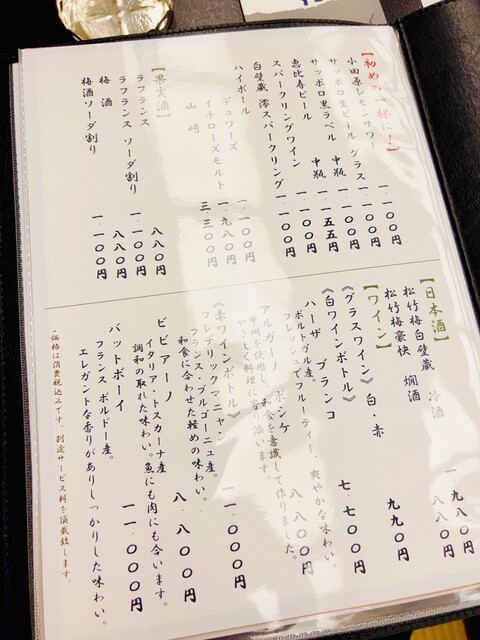 【初めの一杯に!】
小田原レモンサワー 一.一〇〇円
サッポロ生ビール グラス 一.〇〇〇円
サッポロ黒ラベル 中瓶 一.〇〇〇円
恵比寿ビール 中瓶 一.一五五円
スパークリングワイン 一.一〇〇円
白壁蔵 澪スパークリング 一.一〇〇円
ハイボール
デュワーズ 一.一〇〇円
イチローズモルト 一.九八〇円
山崎 三.三〇〇円
【果実酒】
ラフランス 八八〇円
ラフランス ソーダ割り 一.一〇〇円
梅酒 八八〇円
梅酒ソーダ割り 一.一〇〇円
【日本酒】
松竹梅白壁蔵 冷酒 一.九八〇円
松竹梅豪快 燗酒 八八〇円
【ワイン】
《グラスワイン》白・赤 九九〇円
《白ワインボトル》
ハーザ ブランコ 七.七〇〇円
ポルトガル産。
フレッシュでフルーティー、爽やかな味わい。
アルガーノ ボシケ 八.八〇〇円
甲州を使用し、和食を意識して作りました。
やさしく料理に寄り添います。
《赤ワインボトル》
フレデリックマニャン 一一.〇〇〇円
フランス・ブルゴーニュ産。
和食に合わせた軽めの味わい。
ビビアーノ 八.八〇〇円
イタリア・トスカーナ産
調和の取れた味わい。魚にも肉にも合います。
バットボーイ 一一.〇〇〇円
フランス ボルドー産。
エレガントな香りがありしっかりした味わい。
・価格は消費税込みです。別途サービス料を頂戴致します。